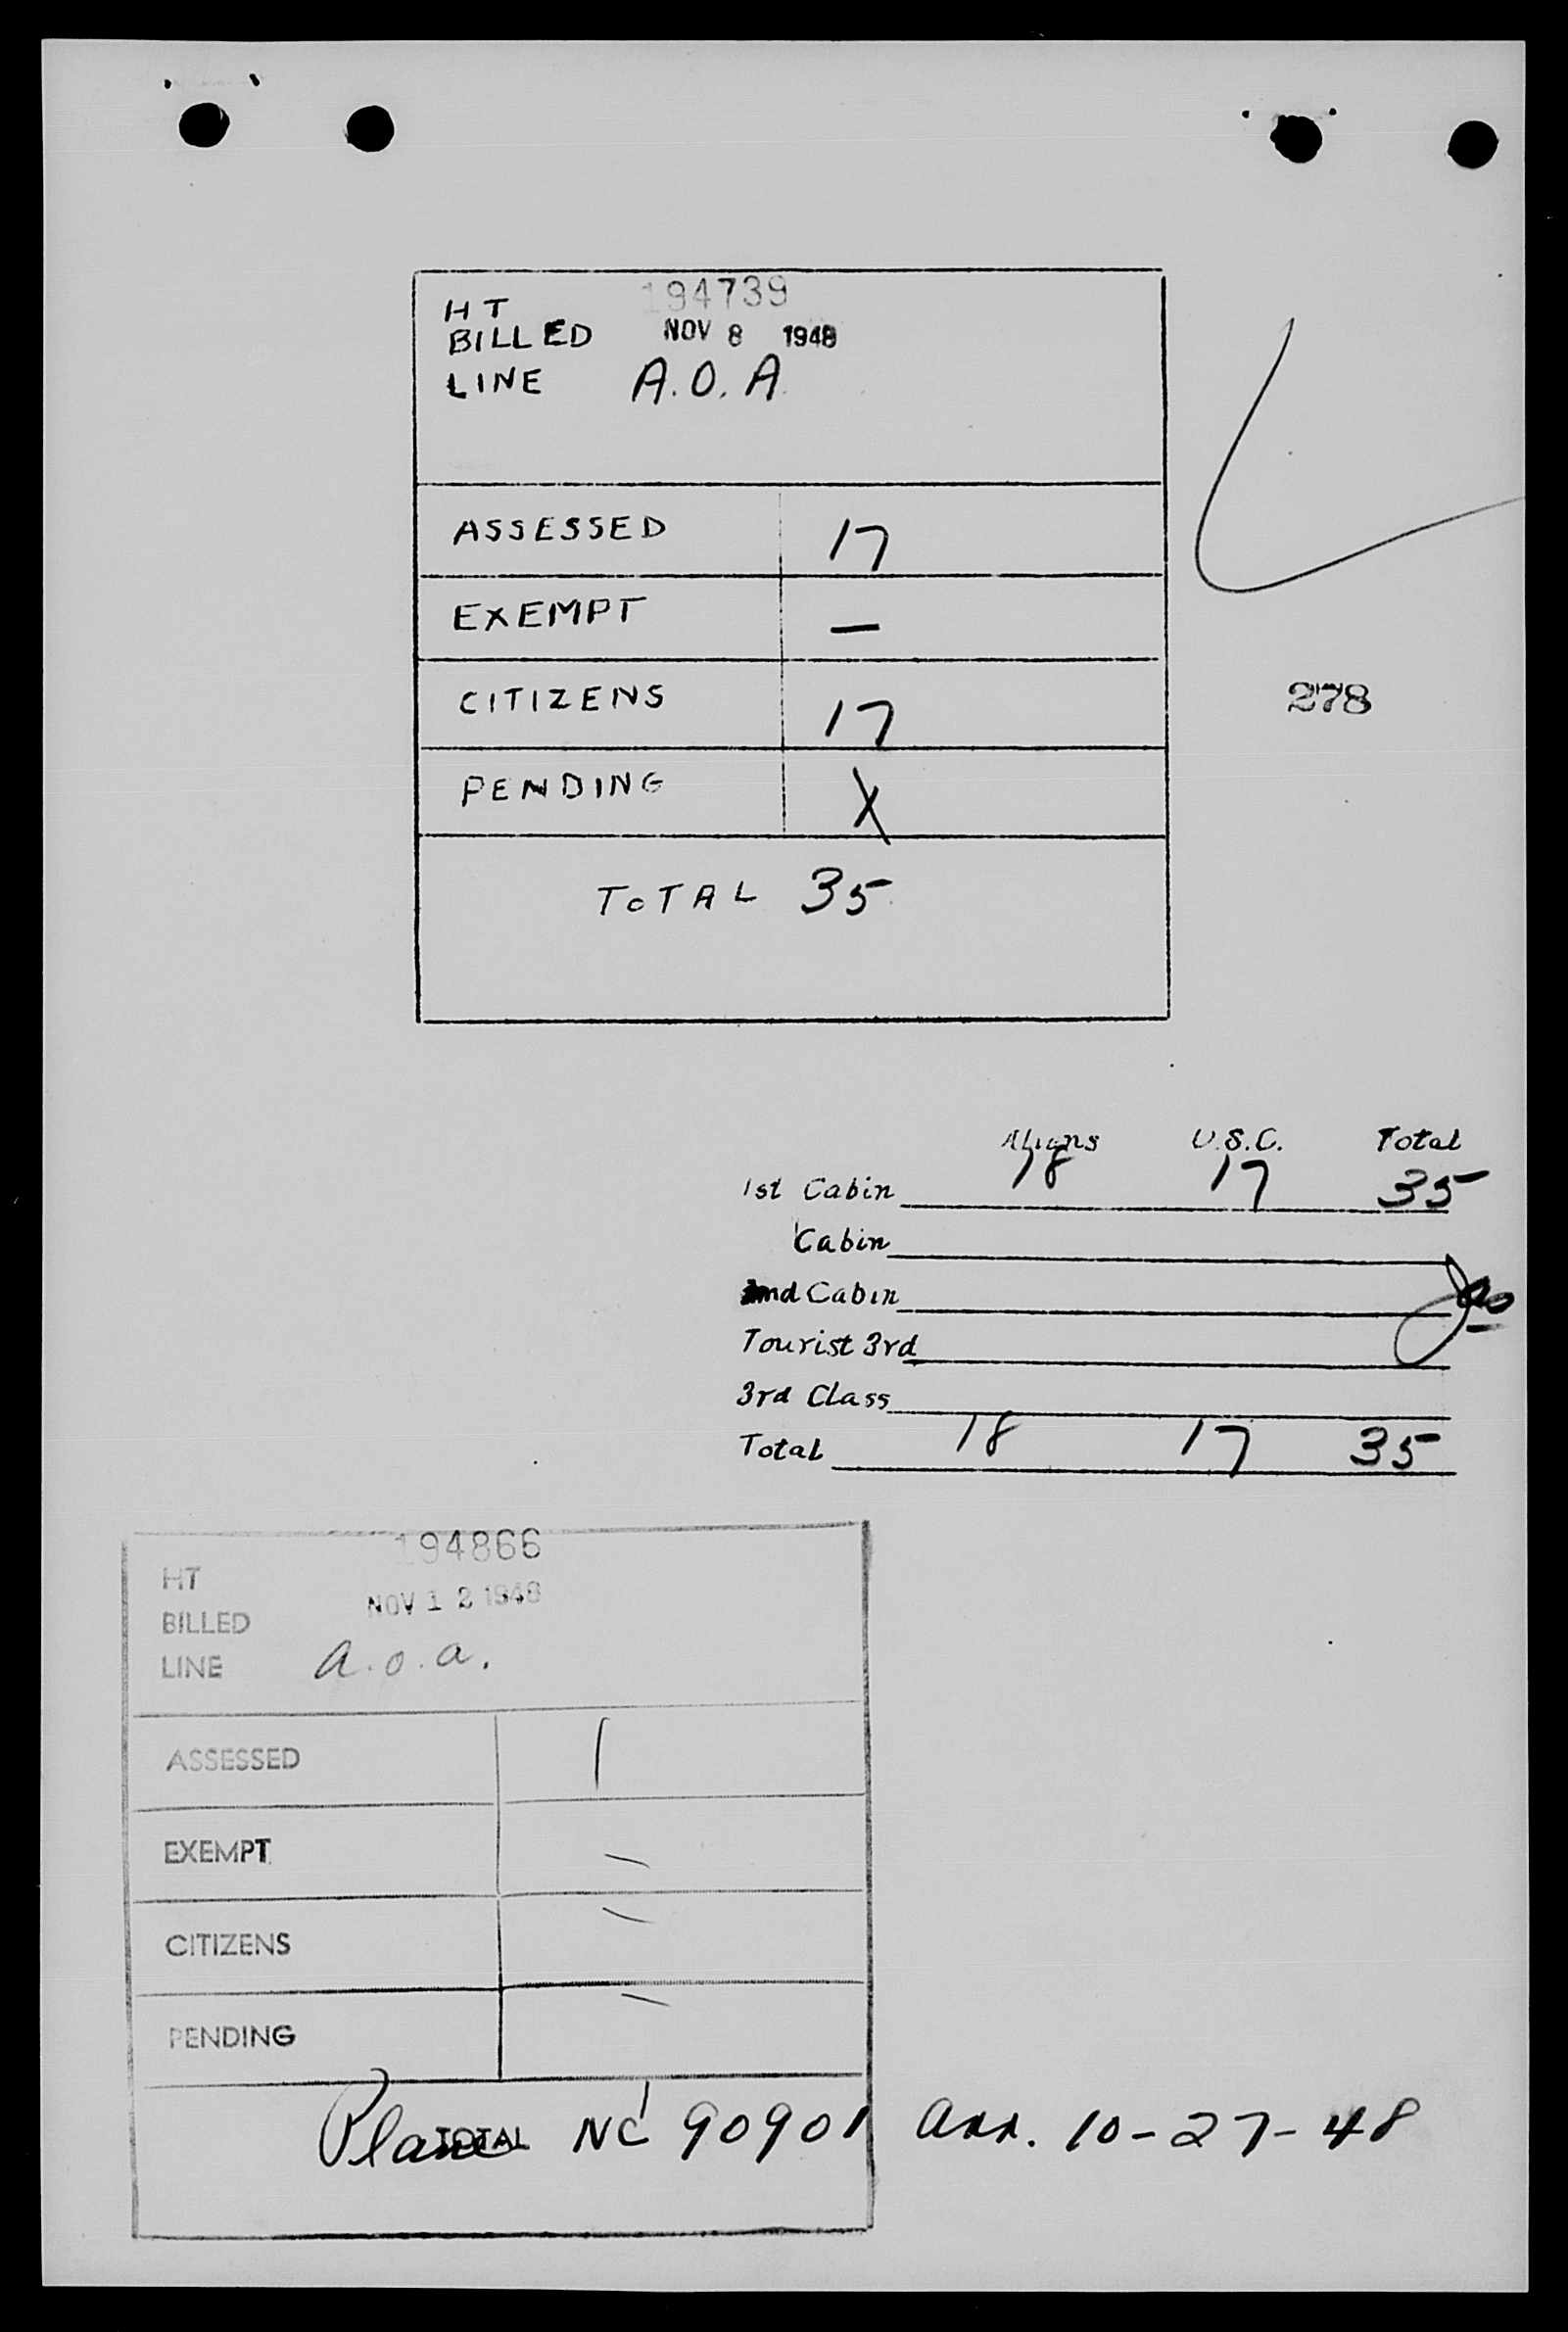 194739
HT
BILLED NOV 8 1948
LINE A.O.A.
ASSESSED 17
EXEMPT —
CITIZENS 17
PENDING X
TOTAL 35
278
Aliens U.S.C. Total
1st Cabin 18 17 35
Cabin
2nd Cabin
Tourist 3rd
3rd Class
Total 18 17 35
194866
HT
BILLED NOV 12 1948
LINE a.o.a.
ASSESSED 1
EXEMPT —
CITIZENS —
PENDING —
TOTAL 1
Plane NC 90901 arr. 10-27-48